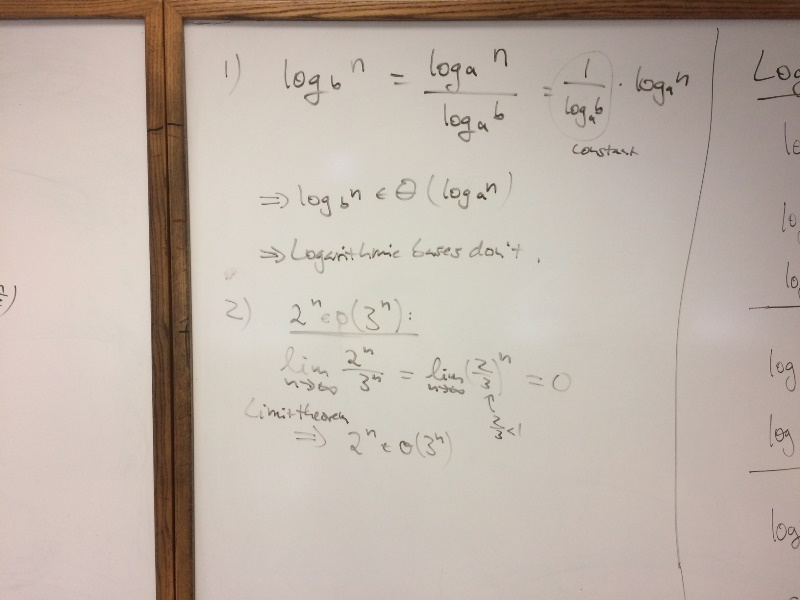 1) log_b n = log_a n / log_a b = 1 / log_a b · log_a n
constant
⇒ log_b n ∈ Θ (log_a n)
⇒ Logarithmic bases don't.
2) 2^n ∈ o(3^n):
lim n→∞ 2^n / 3^n = lim n→∞ (2/3)^n = 0
2/3 < 1
Limit theorem
⇒ 2^n ∈ o(3^n)
log
log
log